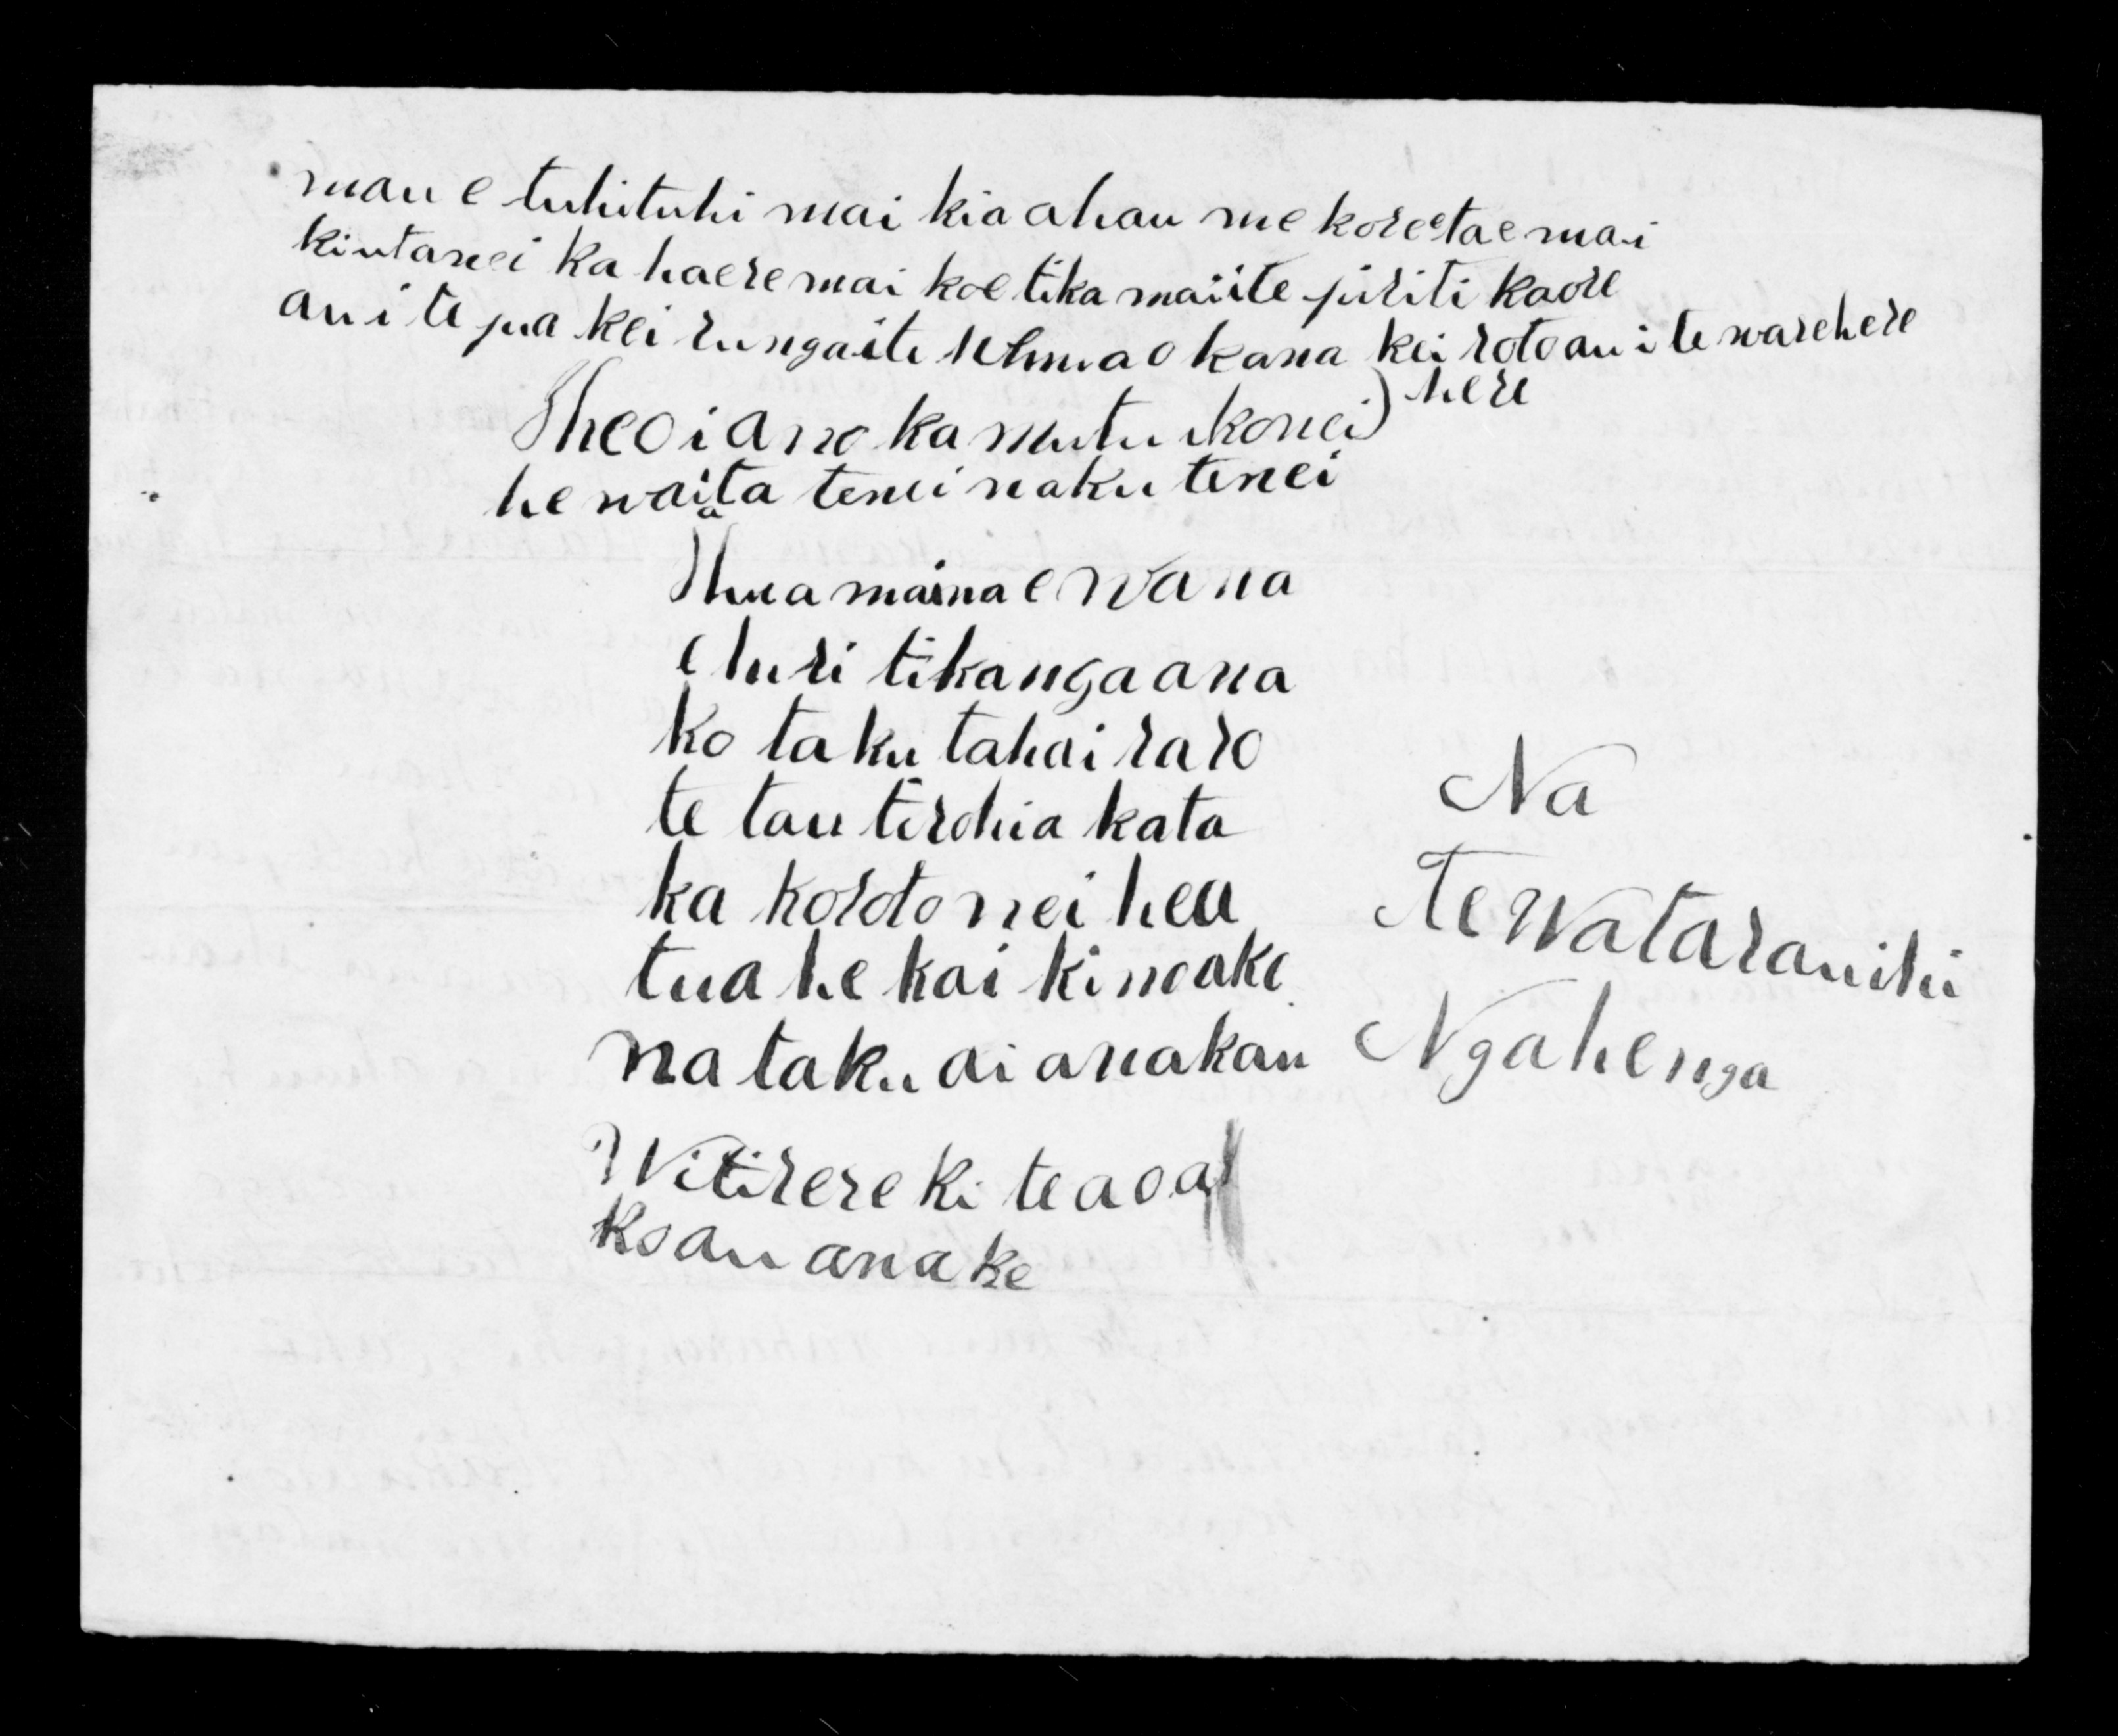 mau e tuhituhi mai kia ahau me kore e tae mai
kiutanei ka haere mai koe tika mai ite piriti kaore
au i te pa kei runga ite okana kei roto au i te warehere
here
Iheoi ano ka mutu ikonei)
he waiata tenei naku tenei
Ihua maina e wana
e huri tikanga ana
ko taku taha i raro
te tau tirohia kata
ka koroto nei hea
tua he kai kino ake
na taku ai anakau
Witirere ki te aoa
ko au anake
Na
Te Watarauihi
Ngahenga